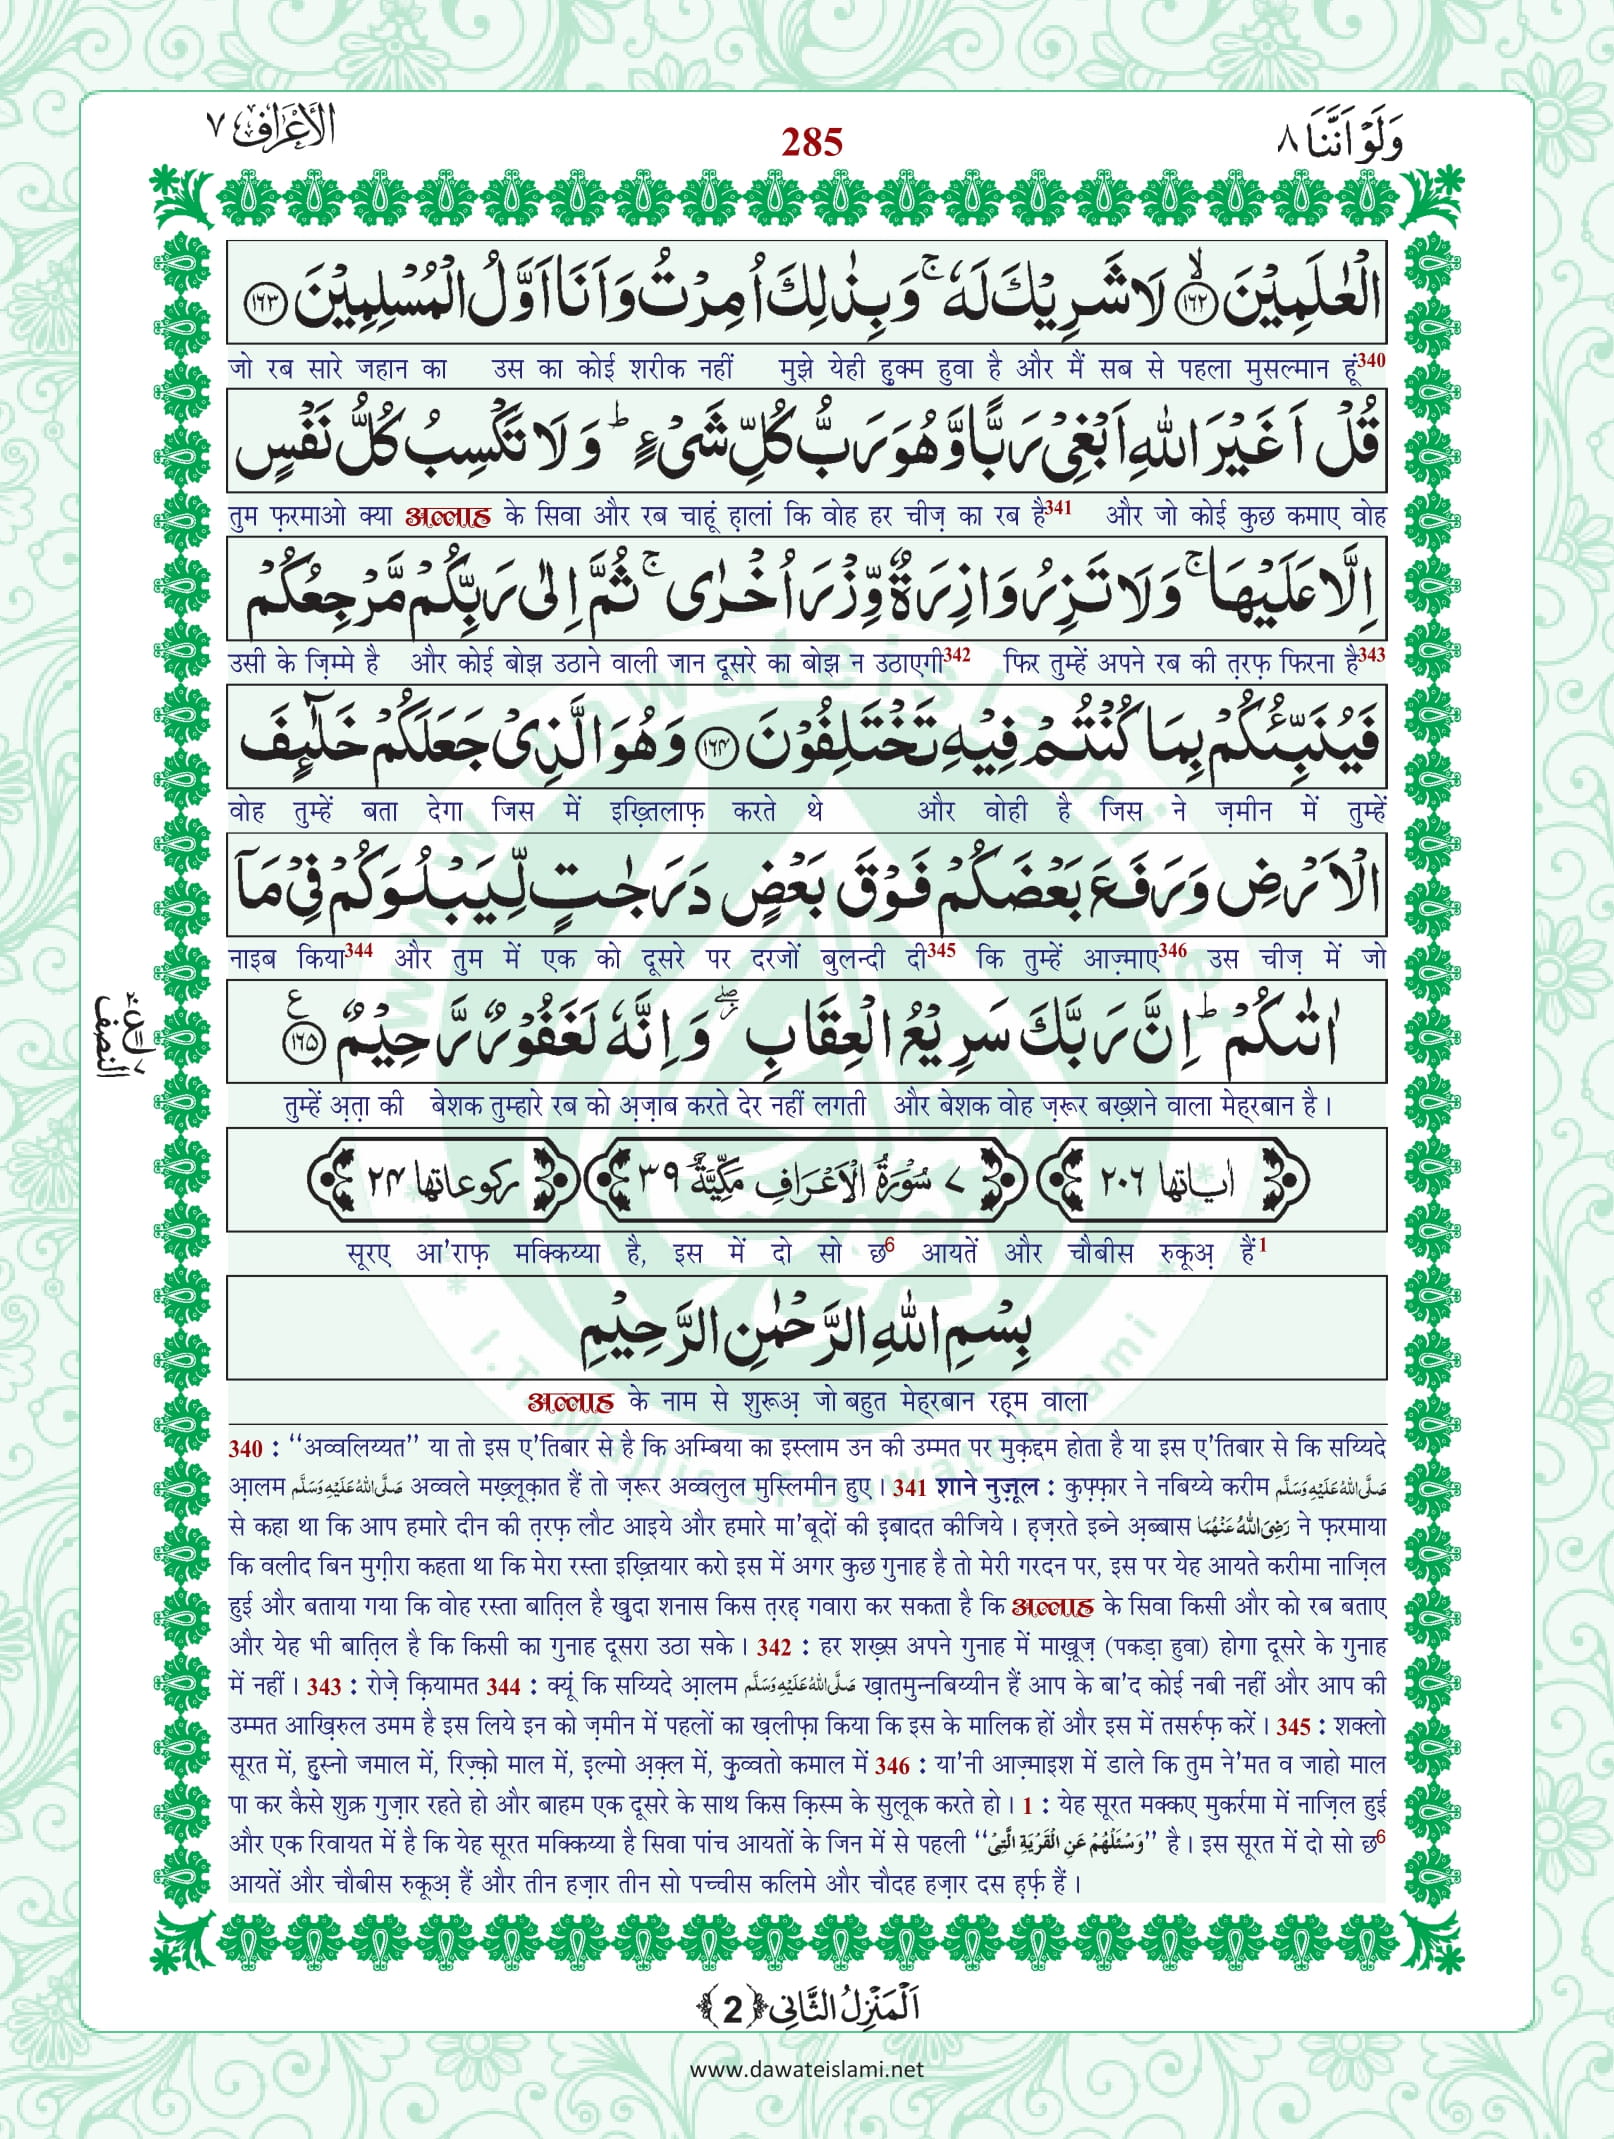 وَلَوْ اَنَّنَا ٨
285
الْاَعْرَاف ٧
الْعٰلَمِیْنَۙ ﴿١٦٢﴾ لَا شَرِیْكَ لَهٗۚ وَبِذٰلِكَ اُمِرْتُ وَاَنَا اَوَّلُ الْمُسْلِمِیْنَ ﴿١٦٣﴾
जो रब सारे जहान का उस का कोई शरीक नहीं मुझे येही हुक्म हुवा है और मैं सब से पहला मुसल्मान हूं340
قُلْ اَغَیْرَ اللّٰهِ اَبْغِیْ رَبًّا وَّهُوَ رَبُّ كُلِّ شَیْءٍؕ وَلَا تَكْسِبُ كُلُّ نَفْسٍ
तुम फ़रमाओ क्या अल्लाह के सिवा और रब चाहूं ह़ालां कि वोह हर चीज़ का रब है341 और जो कोई कुछ कमाए वोह
اِلَّا عَلَیْهَاۚ وَلَا تَزِرُ وَازِرَةٌ وِّزْرَ اُخْرٰیۚ ثُمَّ اِلٰی رَبِّكُمْ مَّرْجِعُكُمْ
उसी के ज़िम्मे है और कोई बोझ उठाने वाली जान दूसरे का बोझ न उठाएगी342 फिर तुम्हें अपने रब की त़रफ़ फिरना है343
فَیُنَبِّئُكُمْ بِمَا كُنْتُمْ فِیْهِ تَخْتَلِفُوْنَ ﴿١٦٤﴾ وَهُوَ الَّذِیْ جَعَلَكُمْ خَلٰٓئِفَ
वोह तुम्हें बता देगा जिस में इख़्तिलाफ़ करते थे और वोही है जिस ने ज़मीन में तुम्हें
الْاَرْضِ وَرَفَعَ بَعْضَكُمْ فَوْقَ بَعْضٍ دَرَجٰتٍ لِّیَبْلُوَكُمْ فِیْ مَاۤ
नाइब किया344 और तुम में एक को दूसरे पर दरजों बुलन्दी दी345 कि तुम्हें आज़्माए346 उस चीज़ में जो
اٰتٰىكُمْؕ اِنَّ رَبَّكَ سَرِیْعُ الْعِقَابِ ۖ٘ وَاِنَّهٗ لَغَفُوْرٌ رَّحِیْمٌ ﴿١٦٥﴾ ع
النصف
तुम्हें अ़त़ा की बेशक तुम्हारे रब को अ़ज़ाब करते देर नहीं लगती और बेशक वोह ज़रूर बख़्शने वाला मेह्‌रबान है।
اٰیاتها ٢٠٦ ٧ سُوْرَةُ الْاَعْرَافِ مَكِّیَّةٌ ٣٩ ركوعاتها ٢٤
सूरए आ'राफ़ मक्किय्या है, इस में दो सो छ6 आयतें और चौबीस रुकूअ़ हैं1
بِسْمِ اللّٰهِ الرَّحْمٰنِ الرَّحِیْمِ
अल्लाह के नाम से शुरूअ़ जो बहुत मेह्‌रबान रह़्म वाला
340 : ‘‘अव्वलिय्यत’’ या तो इस ए'तिबार से है कि अम्बिया का इस्लाम उन की उम्मत पर मुक़द्दम होता है या इस ए'तिबार से कि सय्यिदे
आ़लम صَلَّی اللّٰهُ عَلَیْهِ وَسَلَّم अव्वले मख़्लूक़ात हैं तो ज़रूर अव्वलुल मुस्लिमीन हुए। 341 शाने नुज़ूल : कुफ़्फ़ार ने नबिय्ये करीम صَلَّی اللّٰهُ عَلَیْهِ وَسَلَّم
से कहा था कि आप हमारे दीन की त़रफ़ लौट आइये और हमारे मा'बूदों की इबादत कीजिये। ह़ज़रते इब्ने अ़ब्बास رَضِیَ اللّٰهُ عَنْهُمَا ने फ़रमाया
कि वलीद बिन मुग़ीरा कहता था कि मेरा रस्ता इख़्तियार करो इस में अगर कुछ गुनाह है तो मेरी गरदन पर, इस पर येह आयते करीमा नाज़िल
हुई और बताया गया कि वोह रस्ता बात़िल है ख़ुदा शनास किस त़रह़ गवारा कर सकता है कि अल्लाह के सिवा किसी और को रब बताए
और येह भी बात़िल है कि किसी का गुनाह दूसरा उठा सके। 342 : हर शख़्स अपने गुनाह में माख़ूज़ (पकड़ा हुवा) होगा दूसरे के गुनाह
में नहीं। 343 : रोज़े क़ियामत 344 : क्यूं कि सय्यिदे आ़लम صَلَّی اللّٰهُ عَلَیْهِ وَسَلَّم ख़ातमुन्नबिय्यीन हैं आप के बा'द कोई नबी नहीं और आप की
उम्मत आख़िरुल उमम है इस लिये इन को ज़मीन में पहलों का ख़लीफ़ा किया कि इस के मालिक हों और इस में तसर्रुफ़ करें। 345 : शक्लो
सूरत में, हुस्नो जमाल में, रिज़्क़ो माल में, इल्मो अ़क़्ल में, क़ुव्वतो कमाल में 346 : या'नी आज़्माइश में डाले कि तुम ने'मत व जाहो माल
पा कर कैसे शुक्र गुज़ार रहते हो और बाहम एक दूसरे के साथ किस क़िस्म के सुलूक करते हो। 1 : येह सूरत मक्कए मुकर्रमा में नाज़िल हुई
और एक रिवायत में है कि येह सूरत मक्किय्या है सिवा पांच आयतों के जिन में से पहली ‘‘وَسْـَٔلْهُمْ عَنِ الْقَرْیَةِ الَّتِیْ’’ है। इस सूरत में दो सो छ6
आयतें और चौबीस रुकूअ़ हैं और तीन हज़ार तीन सो पच्चीस कलिमे और चौदह हज़ार दस ह़र्फ़ हैं।
اَلْمَنْزِلُ الثَّانِی ﴿2﴾
www.dawateislami.net